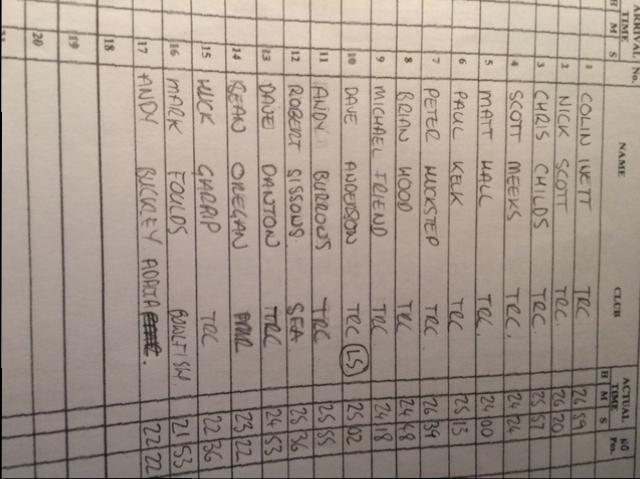 ARRIVAL TIME H M S No. NAME CLUB ACTUAL TIME H M S NO Pos.
1 COLIN IVETT TRC 26 59
2 NICK SCOTT TRC. 26 20
3 CHRIS CHILDS TRC. 25 57
4 SCOTT MEEKS TRC. 24 24
5 MATT HALL TRC. 24 00
6 PAUL KELK TRC 25 13
7 PETER HUCKSTEP TRC. 26 34
8 BRIAN WOOD TRC 24 48
9 MICHAEL FRIEND TRC 24 18
10 DAVE ANDERSON TRC (LS) 25 02
11 ANDY BURROWS TRC 25 55
12 ROBERT SISSONS. SEA 25 36
13 DAVE DANTON TRC 24 53
14 SEAN OREGAN 23 22
15 HUCK TRC 22 36
16 MARK FOULDS 21 53
17 ANDY BUCKLEY 22 22
18
19
20
21